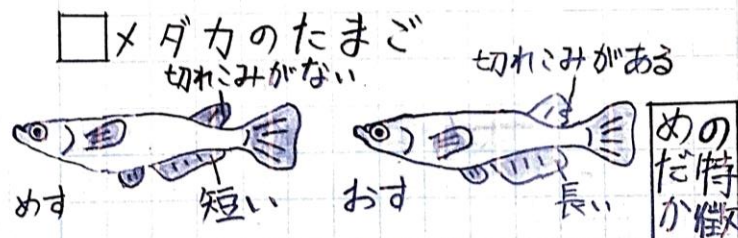 メダカのたまご
切れこみがない
切れこみがある
めす
短い
おす
長い
めだか
の特徴